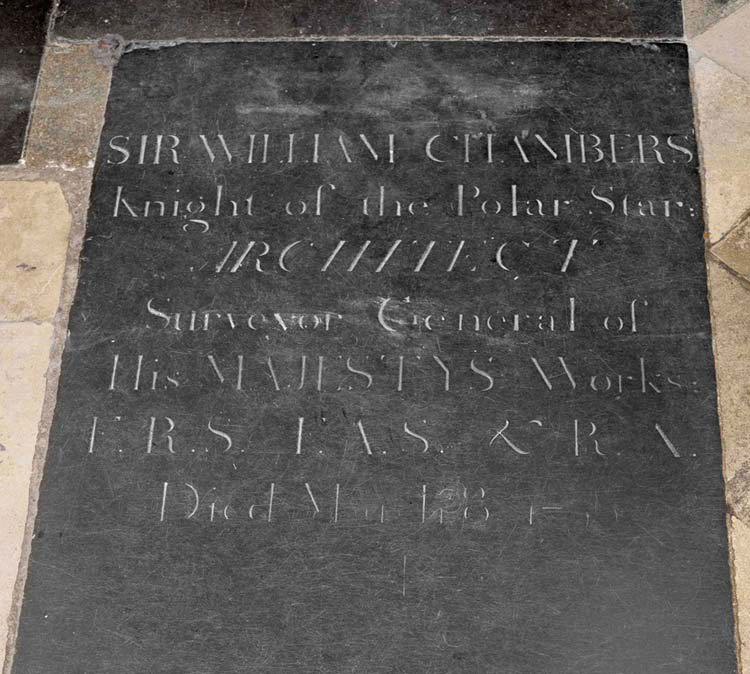 SIR WILLIAM CHAMBERS
Knight of the Polar Star:
ARCHITECT
Surveyor General of
His MAJESTYS Works:
F.R.S. F.A.S. & R.A.
Died